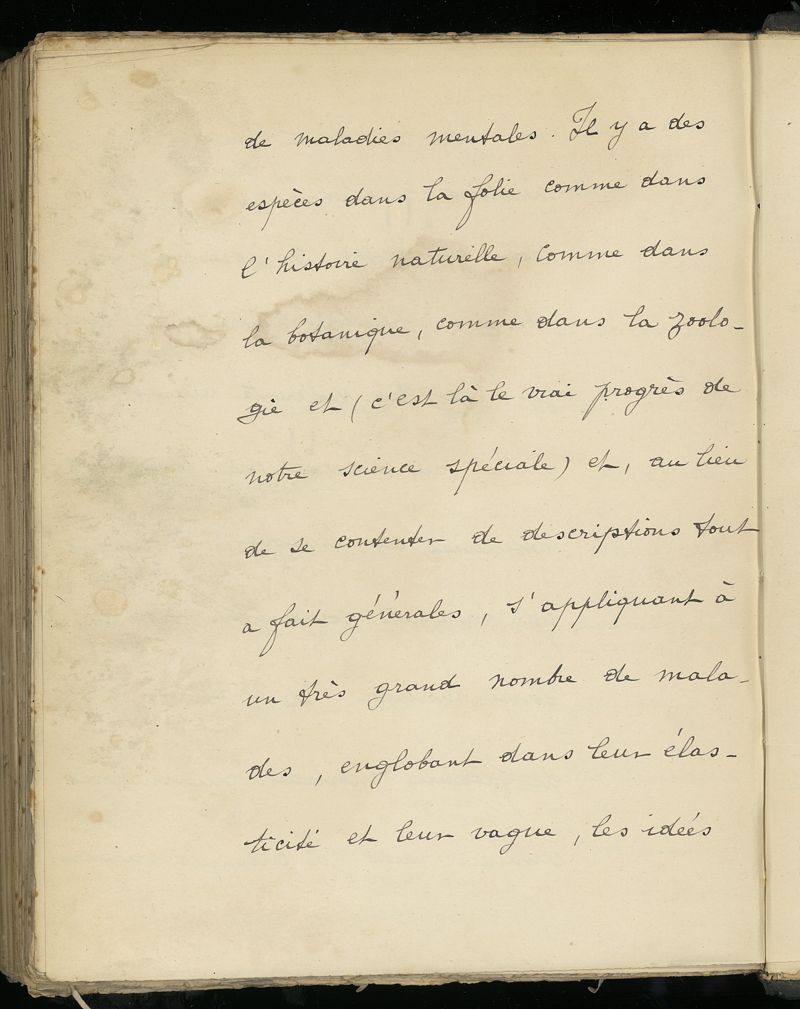 de maladies mentales. Il y a des
espèces dans la folie comme dans
l'histoire naturelle, comme dans
la botanique, comme dans la zoolo-
gie et (c'est là le vrai progrès de
notre science spéciale) et, au lieu
de se contenter de descriptions tout
a fait générales, s'appliquant à
un très grand nombre de mala-
des, englobant dans leur élas-
ticité et leur vague, les idées